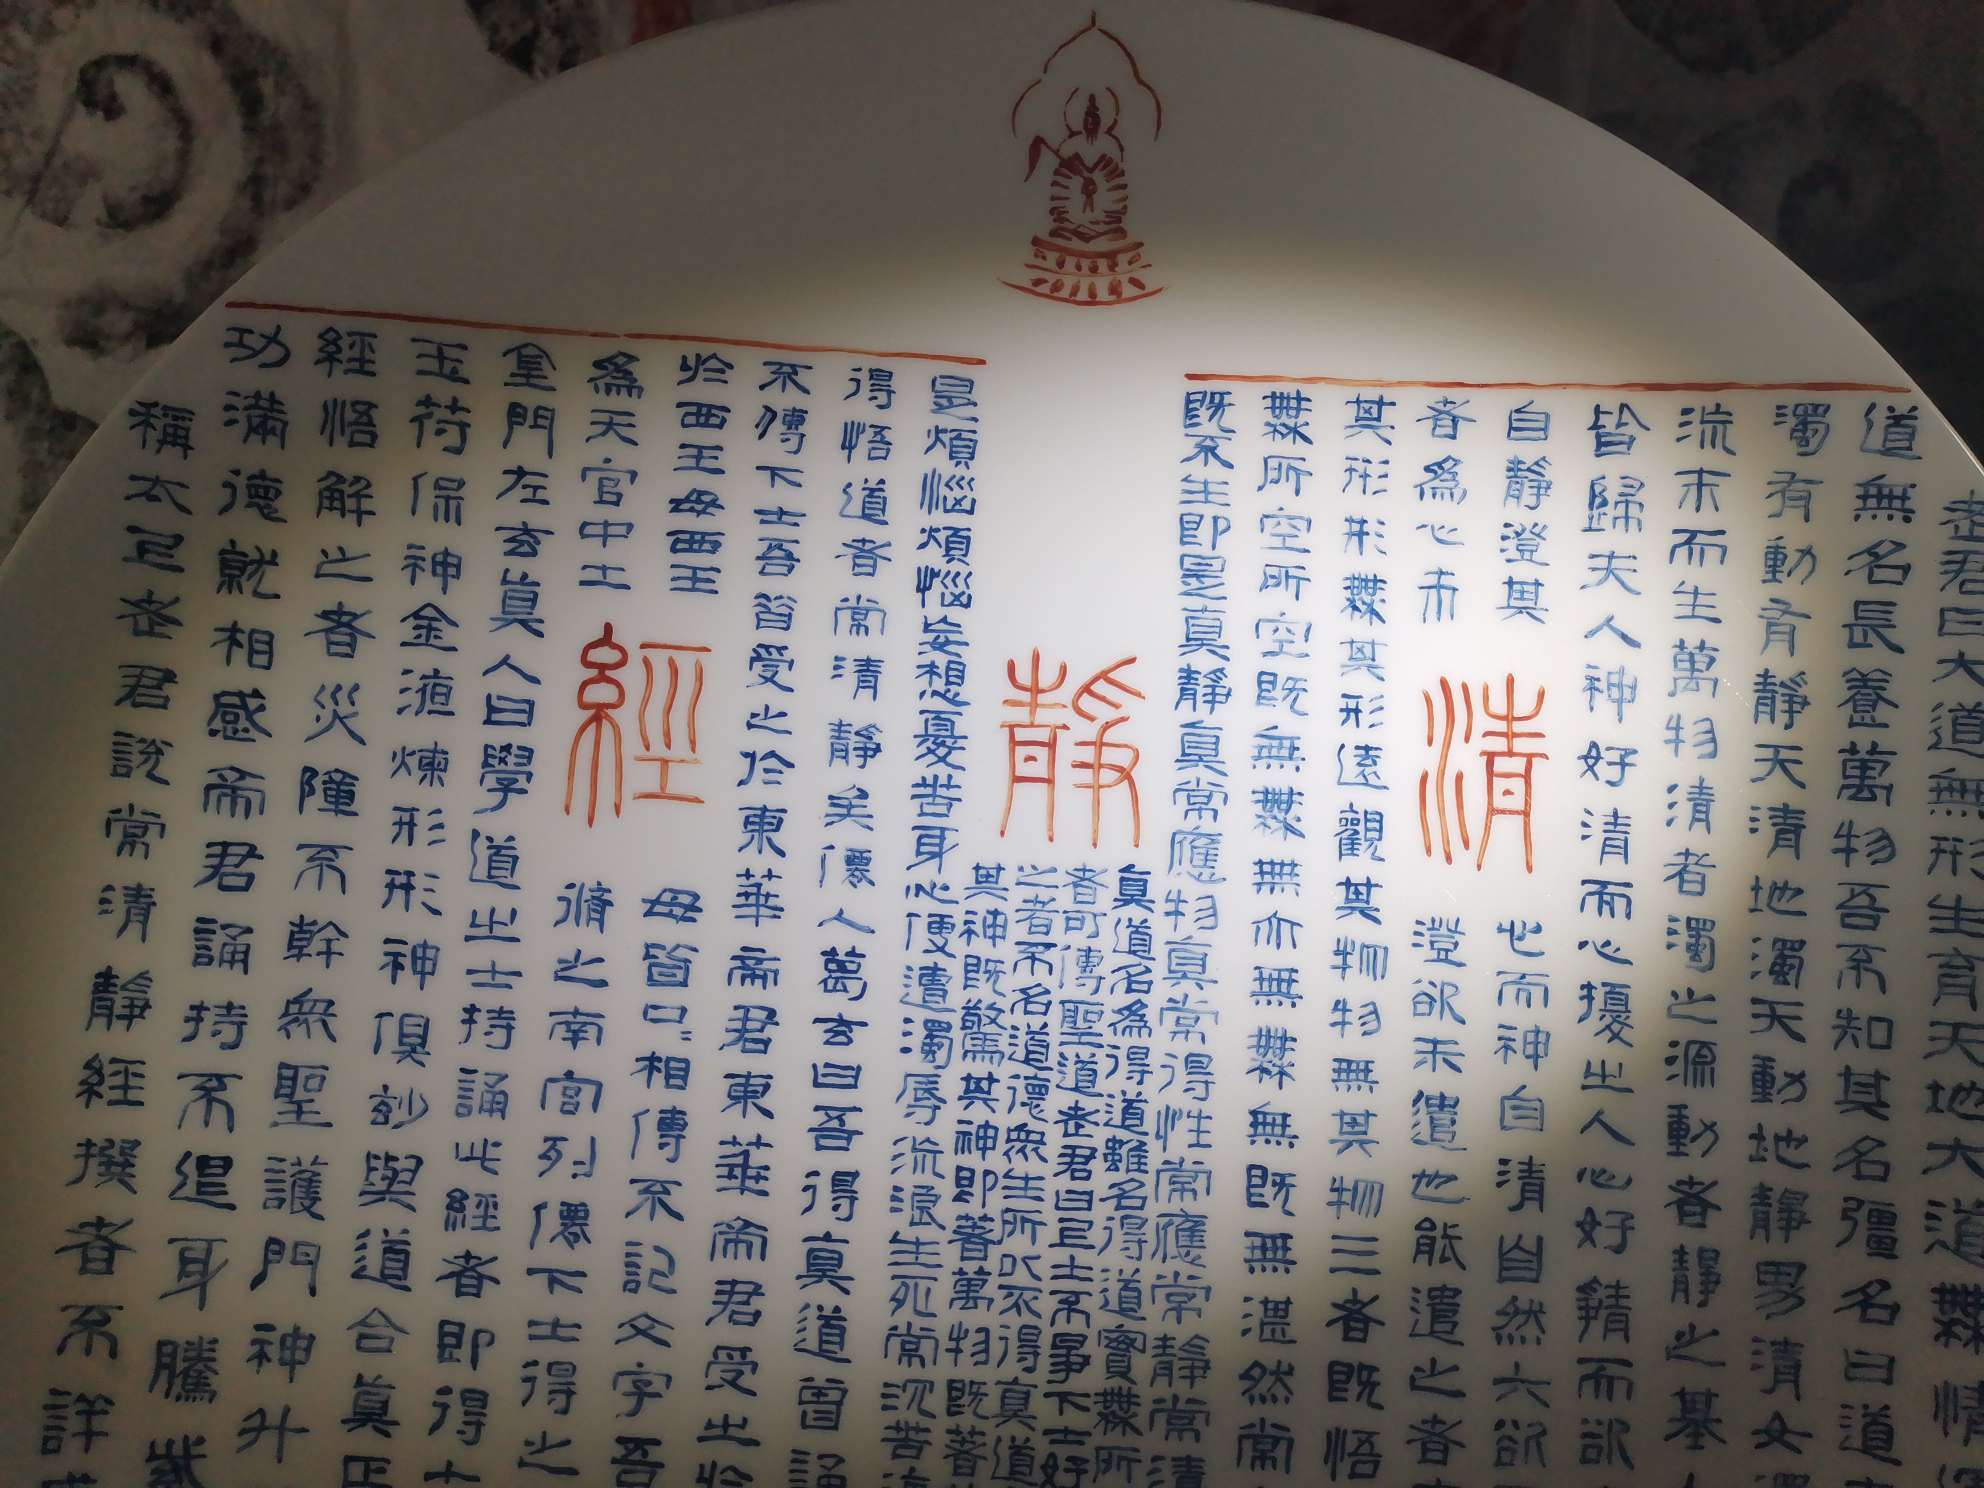 老君曰大道無形生育天地大道無情運
道無名長養萬物吾不知其名彊名曰道
濁有動有靜天清地濁天動地靜男清女濁
流末而生萬物清者濁之源動者靜之基人
皆歸夫人神好清而心擾之人心好靜而欲
自靜澄其心而神自清自然六欲
者為心未澄欲未遣也能遣之者
其形形無其形遠觀其物物無其物三者既悟
無所空所空既無無無亦無無無既無湛然常
既不生即是真靜真常應物真常得性常應常靜常清
清
真道名為得道雖名得道實無所
者可傳聖道老君曰上士不爭下士好
之者不名道德眾生所以不得真道
其神既驚其神即著萬物既著
靜
是煩惱煩惱妄想憂苦身心便遭濁辱流浪生死常沉苦海
得悟道者常清靜矣僊人葛玄曰吾得真道曾誦
不傳下士吾皆受之於東華帝君東華帝君受之於
於西王母西王母皆口口相傳不記文字吾
為天官中士脩之南宮列僊下士得之
經
皇門左玄真人曰學道之士持誦此經者即得十
玉符保神金液煉形形神俱妙與道合真正
經悟解之者災障不幹眾聖護門神升
功滿德就相感帝君誦持不退身騰紫
稱太上老君說常清靜經撰者不詳